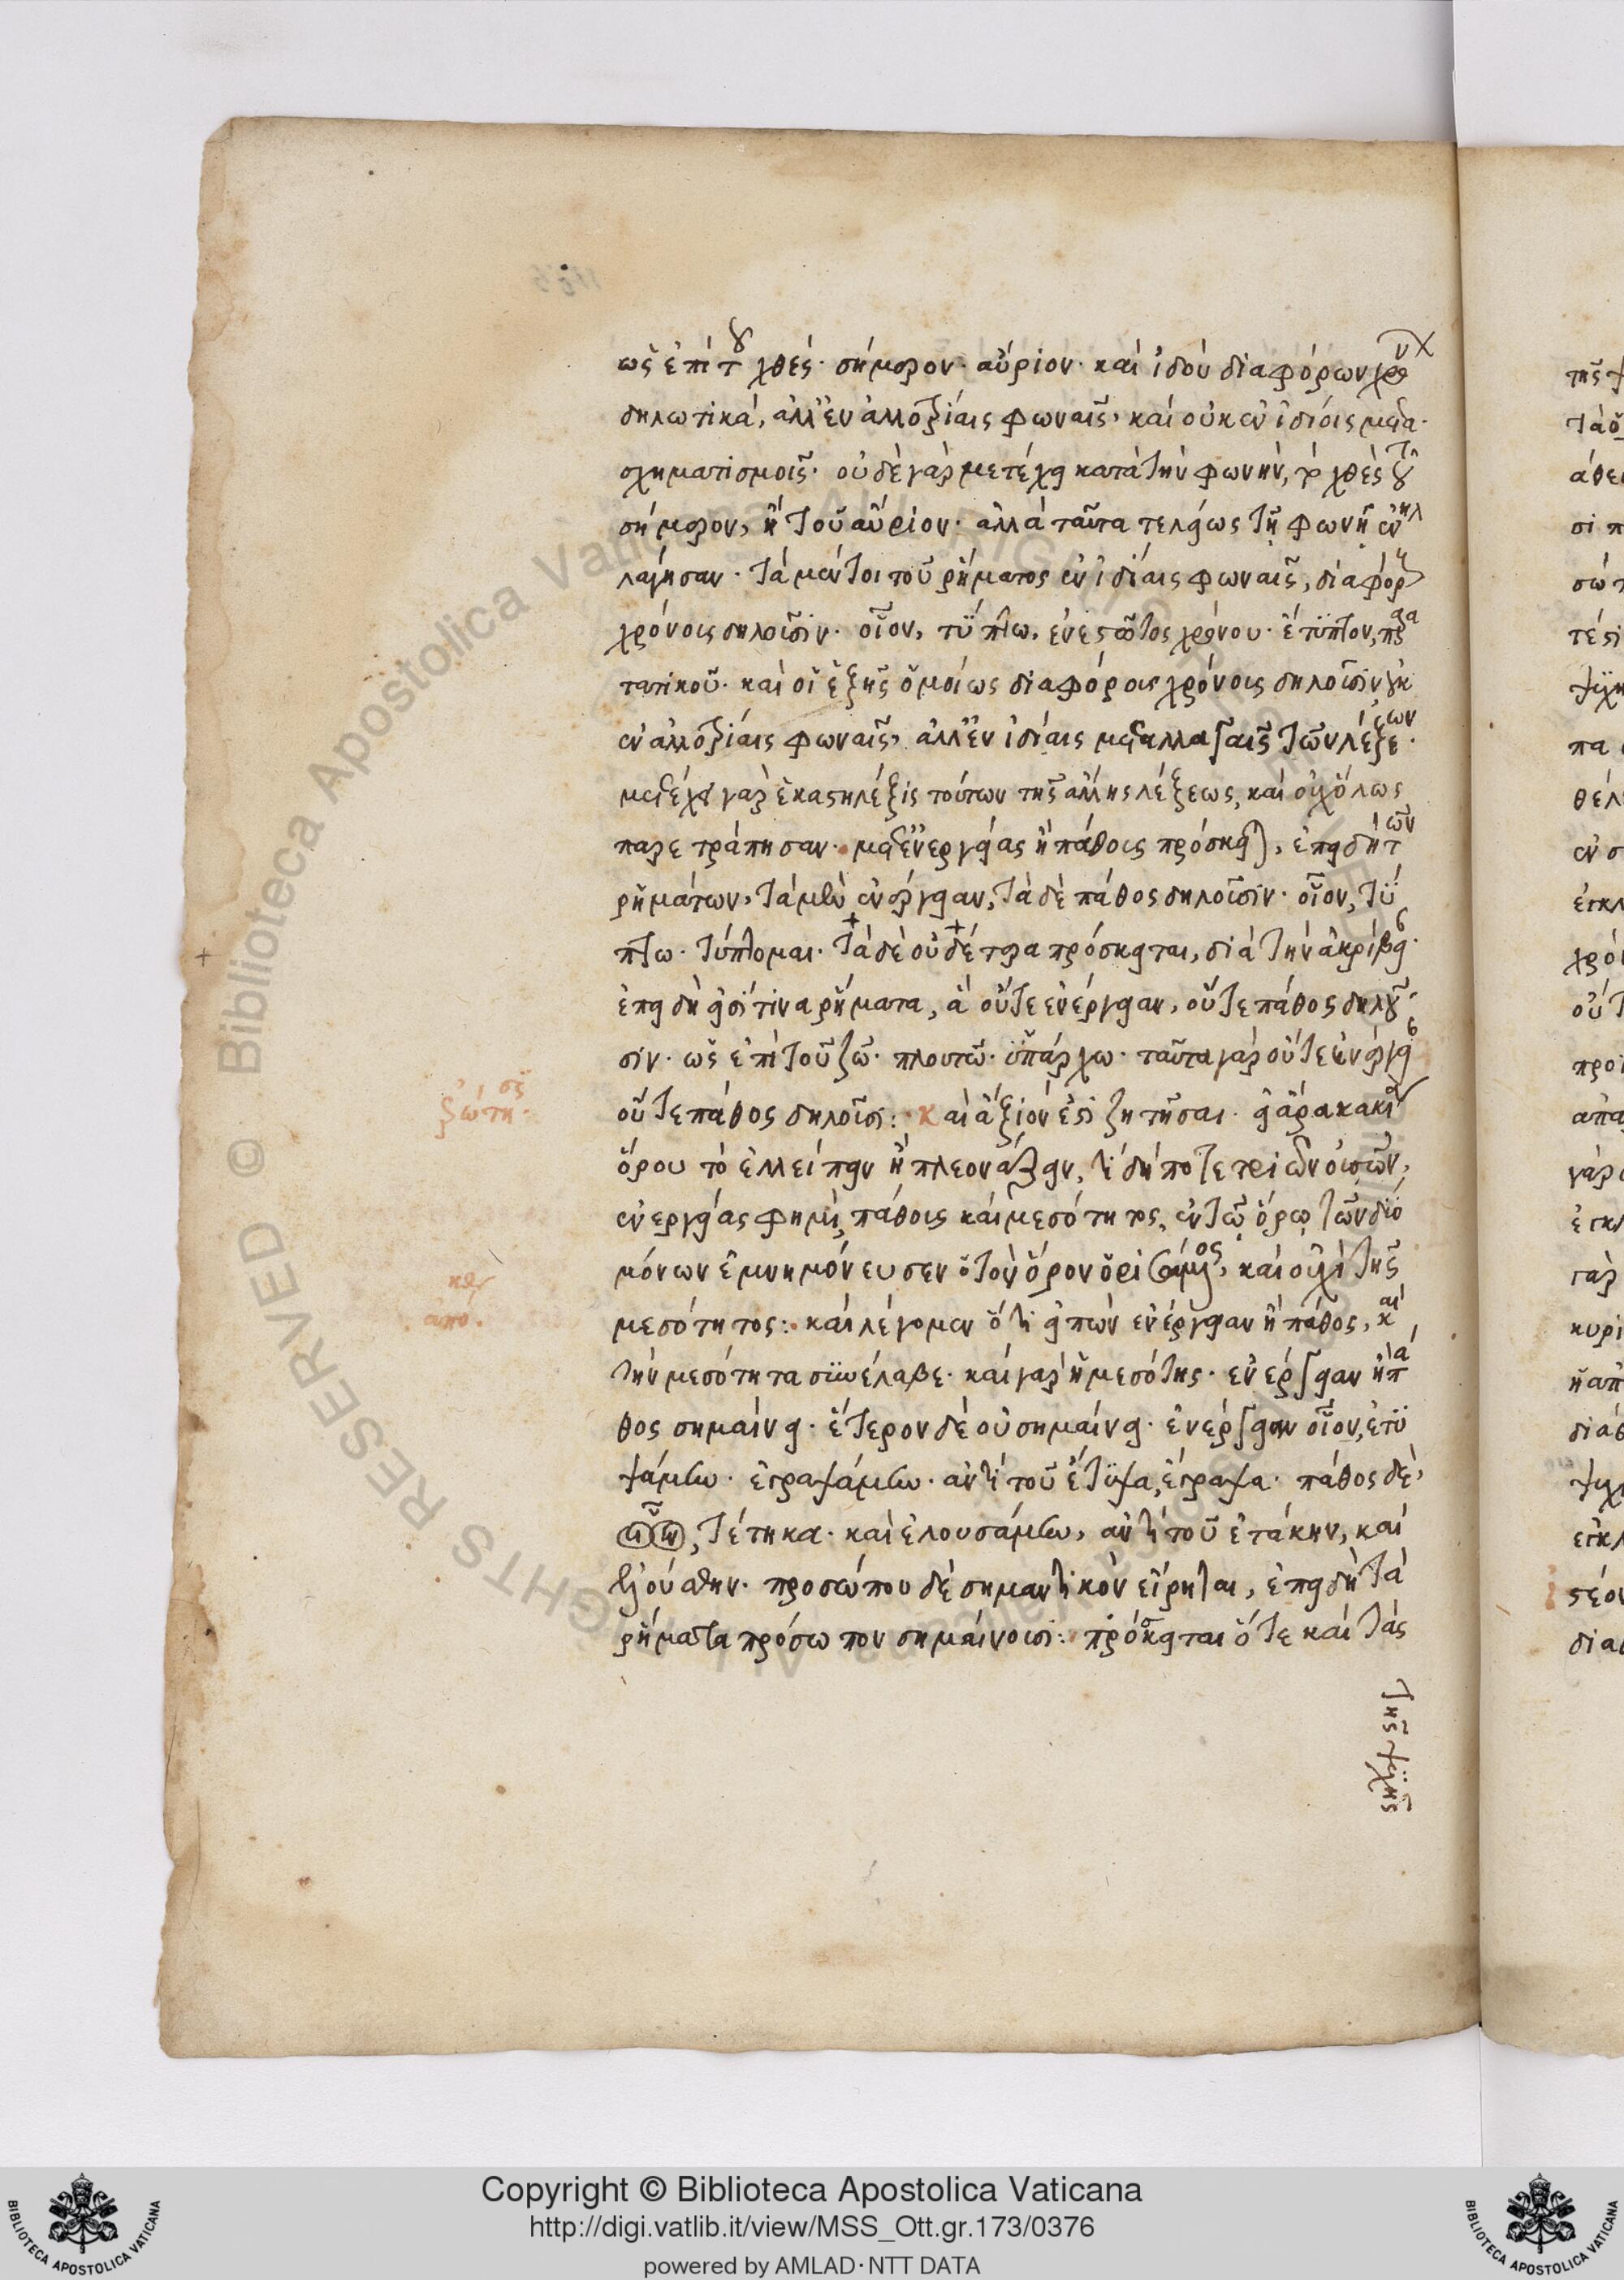 ὡς ἐπὶ τοῦ χθές· σήμερον· αὔριον· καὶ ἰδοὺ διαφόρων χρόνων
δηλωτικά, ἀλλ' ἐν ἀλλοτρίαις φωναῖς, καὶ οὐκ ἐν ἰδίοις μετα
σχηματισμοῖς· οὐδὲ γὰρ μετέχει κατὰ τὴν φωνὴν, τὸ χθὲς τοῦ
σήμερον, ἢ τοῦ αὔριον· ἀλλὰ ταῦτα τελείως τῇ φωνῇ ἐνηλ
λάγησαν· τὰ μέντοι τοῦ ῥήματος ἐν ἰδίαις φωναῖς, διαφόρους
χρόνους δηλοῦσιν· οἷον, τύπτω, ἐνεστῶτος χρόνου· ἔτυπτον, παρα
τατικοῦ· καὶ οἱ ἑξῆς ὁμοίως διαφόρους χρόνους δηλοῦσιν οὐκ
ἐν ἀλλοτρίαις φωναῖς, ἀλλ' ἐν ἰδίαις μεταλλαγαῖς τῶν λέξεων·
μετέχει γὰρ ἑκάστη λέξις τούτων τῆς ἄλλης λέξεως, καὶ οὐχ ὅλως
παρετράπησαν· μετ' ἐνεργείας ἢ πάθους πρόσκειται, ἐπειδὴ τῶν
ῥημάτων, τὰ μὲν ἐνέργειαν, τὰ δὲ πάθος δηλοῦσιν· οἷον, τύ
πτω· τύπτομαι· τὰ δὲ οὐδέτερα πρόσκειται, διὰ τὴν ἀκρίβειαν·
ἐπειδὴ εἰσί τινα ῥήματα, ἃ οὔτε ἐνέργειαν, οὔτε πάθος δηλοῦ
σιν· ὡς ἐπὶ τοῦ ζῶ· πλουτῶ· ὑπάρχω· ταῦτα γὰρ οὔτε ἐνέργειαν
οὔτε πάθος δηλοῦσι: καὶ ἄξιόν ἐστι ζητῆσαι· εἰ ἄρα κακία
ὅρου τὸ ἐλλείπειν ἢ πλεονάζειν, τί δήποτε τριῶν οὐσῶν,
ἐνεργείας φημὶ πάθους καὶ μεσότητος, ἐν τῷ ὅρῳ τῶν δύο
μόνων ἐμνημόνευσεν ὁ τὸν ὅρον ὁρισάμενος, καὶ οὐχὶ τῆς
μεσότητος: καὶ λέγομεν ὅτι εἰπὼν ἐνέργειαν ἢ πάθος, καὶ
τὴν μεσότητα συνέλαβε· καὶ γὰρ ἡ μεσότης· ἐνέργειαν ἢ πά
θος σημαίνει· ἕτερον δὲ οὐ σημαίνει· ἐνέργειαν οἷον, ἐτυ
ψάμην· ἐγραψάμην· ἀντὶ τοῦ ἔτυψα, ἔγραψα· πάθος δὲ,
οἷον, τέτηκα· καὶ ἐλουσάμην, ἀντὶ τοῦ ἐτάκην, καὶ
ἐλούθην· προσώπου δὲ σημαντικὸν εἴρηται, ἐπειδὴ τὰ
ῥήματα πρόσωπον σημαίνουσι: πρόσκειται ὅτε καὶ τὰς
τῆς ψυχῆς
ἐρώτησ
ἀπό
Copyright © Biblioteca Apostolica Vaticana
http://digi.vatlib.it/view/MSS_Ott.gr.173/0376
powered by AMLAD·NTT DATA
BIBLIOTECA APOSTOLICA VATICANA
BIBLIOTECA APOSTOLICA VATICANA